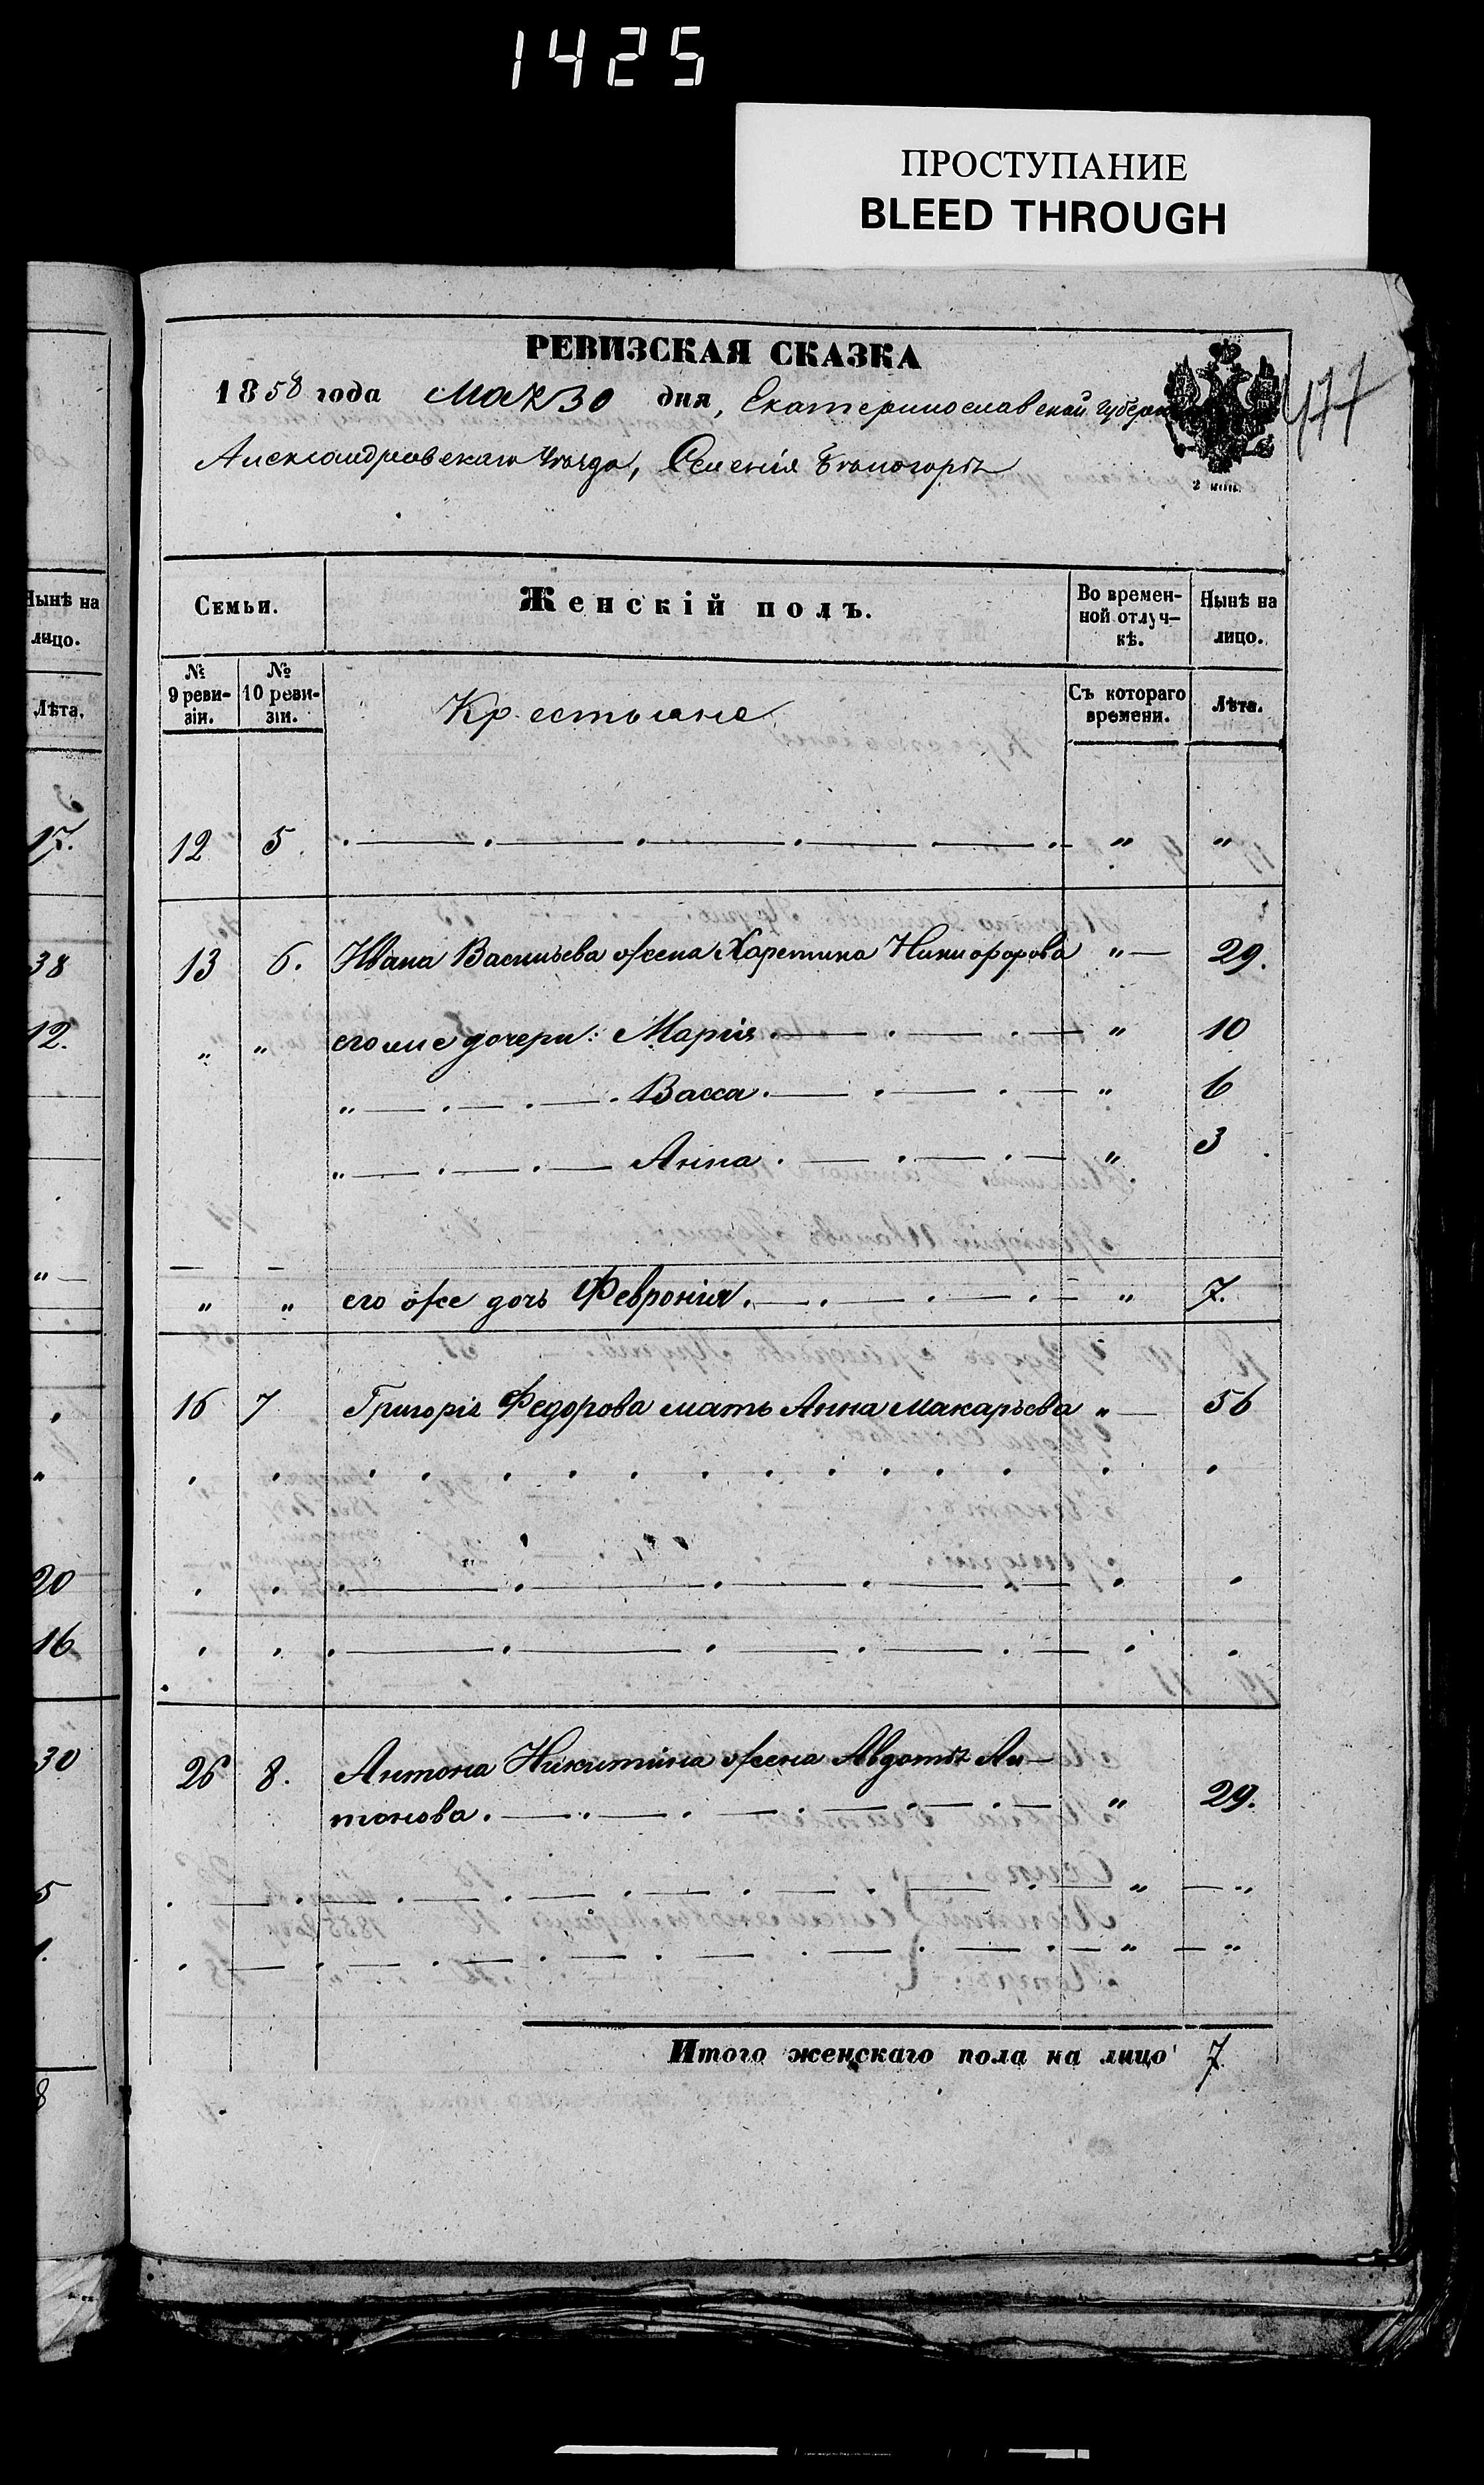 1425
ПРОСТУПАНИЕ
BLEED THROUGH
РЕВИЗСКАЯ СКАЗКА
1858 года Мая 30 дня, Екатеринославской Губерніи
Александровскаго Уѣзда, Селенія Бѣлогорья
477
2 коп.
Семьи. Женскій полъ. Во временной отлучкѣ. Нынѣ на лицо.
№ 9 ревизіи. № 10 ревизіи. Крестьяне Съ котораго времени. Лѣта.
12 5. " "
13 6. Ивана Васильева жена Харетина Никифорова " 29.
" " его же дочери: Марія " 10
" Васса " 6
" Анна " 3
" " его же дочь Февронія " 7.
16 7 Григорія Федорова мать Анна Макарьева " 56
26 8. Антона Никитина жена Авдотья Ан-
тонова " 29.
" "
" "
Итого женскаго пола на лицо 7
Нынѣ на
лицо.
Лѣта.
17.
38
12.
20
16
30
5
1.
8